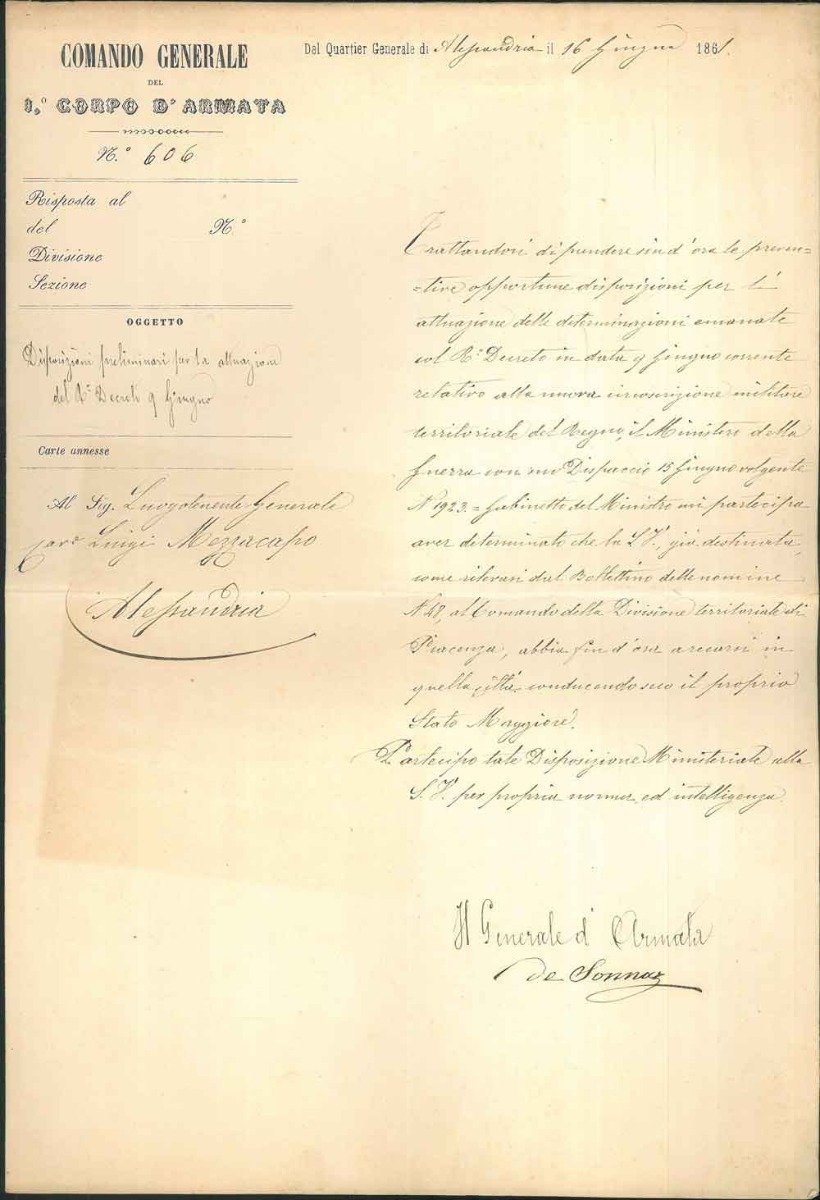 COMANDO GENERALE
DEL
1.° CORPO D'ARMATA
N.° 606
Dal Quartier Generale di Alessandria il 16 Giugno 1861.
Risposta al
del N.°
Divisione
Sezione
OGGETTO
Disposizioni preliminari per la attuazione
del R.° Decreto 9 Giugno
Carte annesse
Al Sig. Luogotenente Generale
Cav.e Luigi Mezzacapo
Alessandria
Trattandosi di prendere sin d'ora le preven=
=tive opportune disposizioni per l'
attuazione delle determinazioni emanate
col R.° Decreto in data 9 Giugno corrente
relativo alla nuova circoscrizione militare
territoriale del Regno, il Ministero della
Guerra con suo Dispaccio 15 Giugno volgente
N. 1923 = Gabinetto del Ministro mi partecipa
aver determinato che la S.V. già destinata,
come rilevasi dal Bollettino delle nomine
N. 28, al Comando della Divisione territoriale di
Piacenza, abbia fin d'ora a recarsi in
quella città, conducendo seco il proprio
Stato Maggiore.
Partecipo tale Disposizione Ministeriale alla
S.V. per propria norma ed intelligenza
Il Generale d'Armata
de Sonnaz